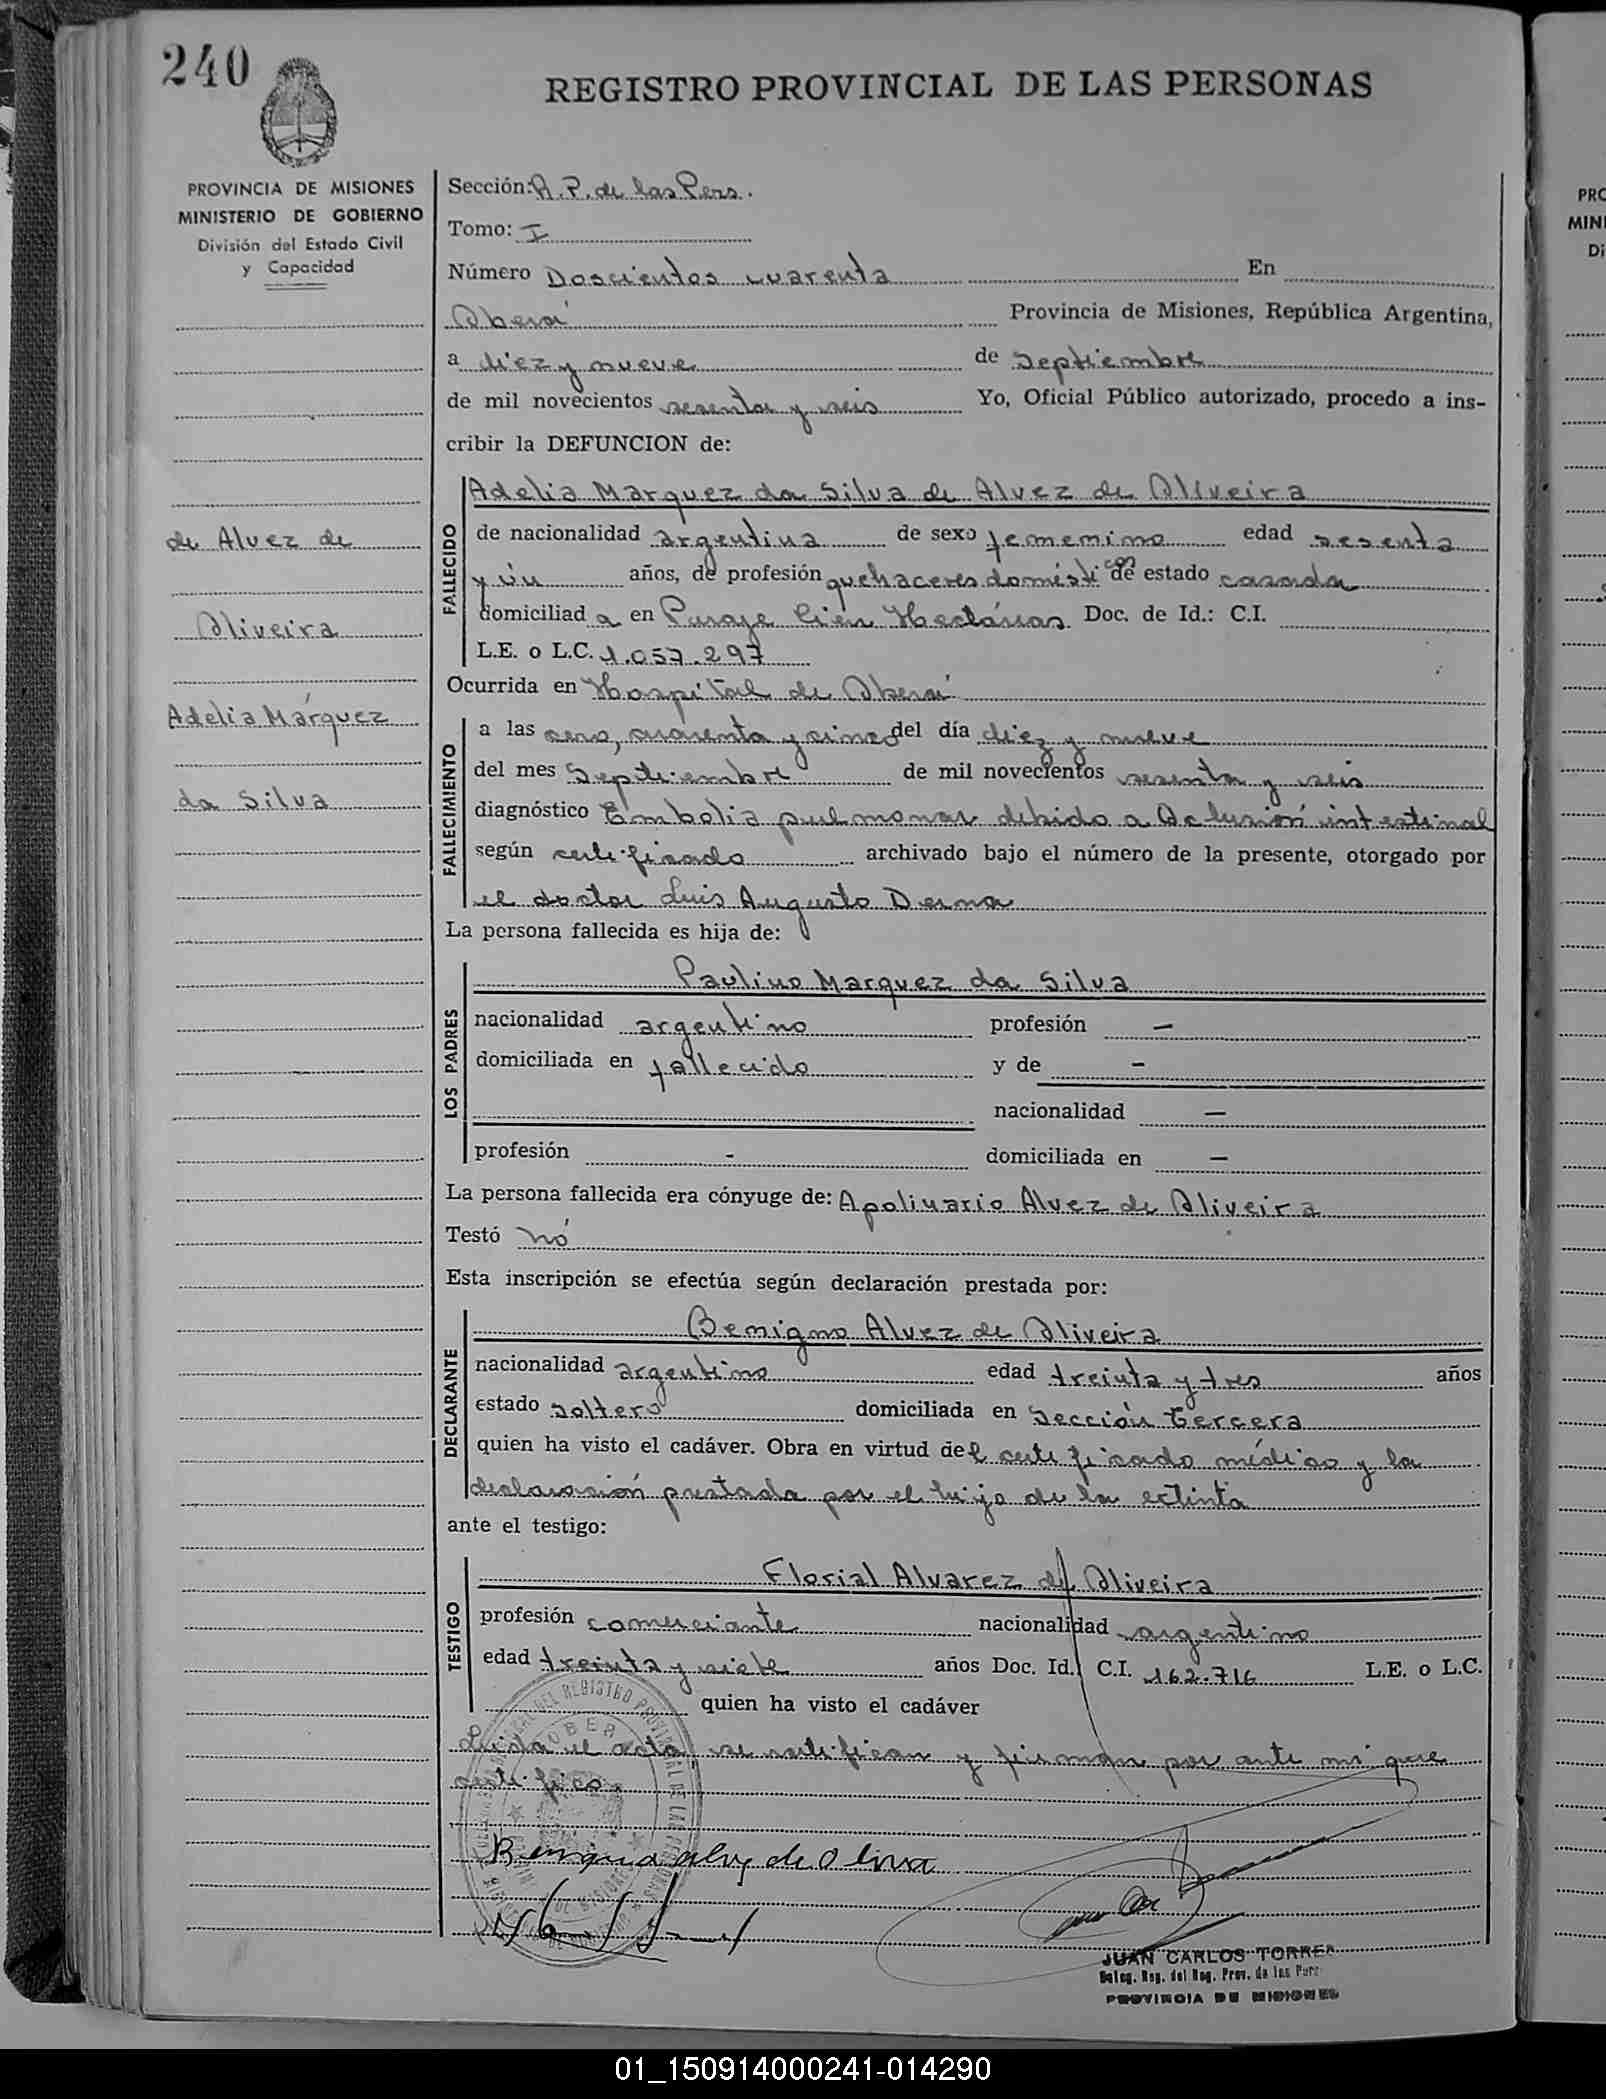 240
REGISTRO PROVINCIAL DE LAS PERSONAS
PROVINCIA DE MISIONES
MINISTERIO DE GOBIERNO
División del Estado Civil
y Capacidad
de Alvez de
Oliveira
Adelia Márquez
da Silva
Sección: R. P. de las Pers.
Tomo: I
Número Doscientos cuarenta En
Oberá Provincia de Misiones, República Argentina,
a diez y nueve de septiembre
de mil novecientos sesenta y seis Yo, Oficial Público autorizado, procedo a ins-
cribir la DEFUNCION de:
FALLECIDO
Adelia Marquez da Silva de Alvez de Oliveira
de nacionalidad argentina de sexo femenino edad sesenta
y un años, de profesión quehaceres domésticos de estado casada
domiciliad a en Paraje Cien Hectáreas Doc. de Id.: C.I.
L.E. o L.C. 1.057.297
Ocurrida en Hospital de Oberá
FALLECIMIENTO
a las cero, cuarenta y cinco del día diez y nueve
del mes Septiembre de mil novecientos sesenta y seis
diagnóstico Embolia pulmonar debido a Oclusión intestinal
según certificado archivado bajo el número de la presente, otorgado por
el doctor Luis Augusto Derna
La persona fallecida es hija de:
LOS PADRES
Paulino Marquez da Silva
nacionalidad argentino profesión —
domiciliada en fallecido y de —
nacionalidad —
profesión - domiciliada en —
La persona fallecida era cónyuge de: Apolinario Alvez de Oliveira
Testó nó
Esta inscripción se efectúa según declaración prestada por:
DECLARANTE
Benigno Alvez de Oliveira
nacionalidad argentino edad treinta y tres años
estado soltero domiciliada en Sección Tercera
quien ha visto el cadáver. Obra en virtud de el certificado médico y la
declaración prestada por el hijo de la extinta
ante el testigo:
TESTIGO
Florial Alvarez de Oliveira
profesión comerciante nacionalidad argentino
edad treinta y siete años Doc. Id. C.I. 162.716 L.E. o L.C.
quien ha visto el cadáver
Leída el acta, se ratifican y firman por ante mi que
certifico.
JUAN CARLOS TORRES
Deleg. Reg. del Reg. Prov. de las Pers.
PROVINCIA DE MISIONES
PRO
MINI
Di
01_150914000241-014290